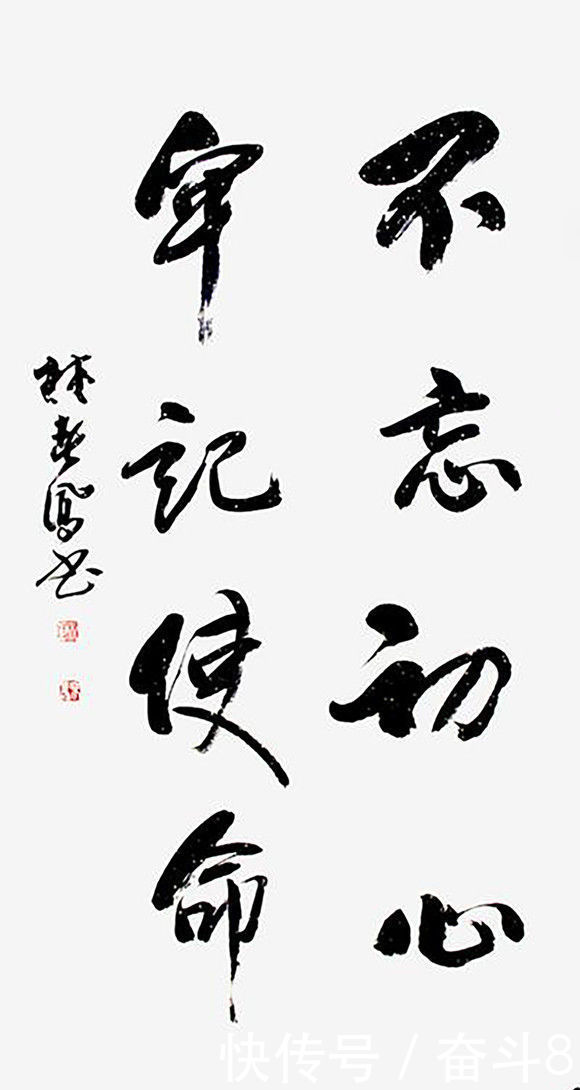 不忘初心
牢记使命
快传号 / 奋斗8